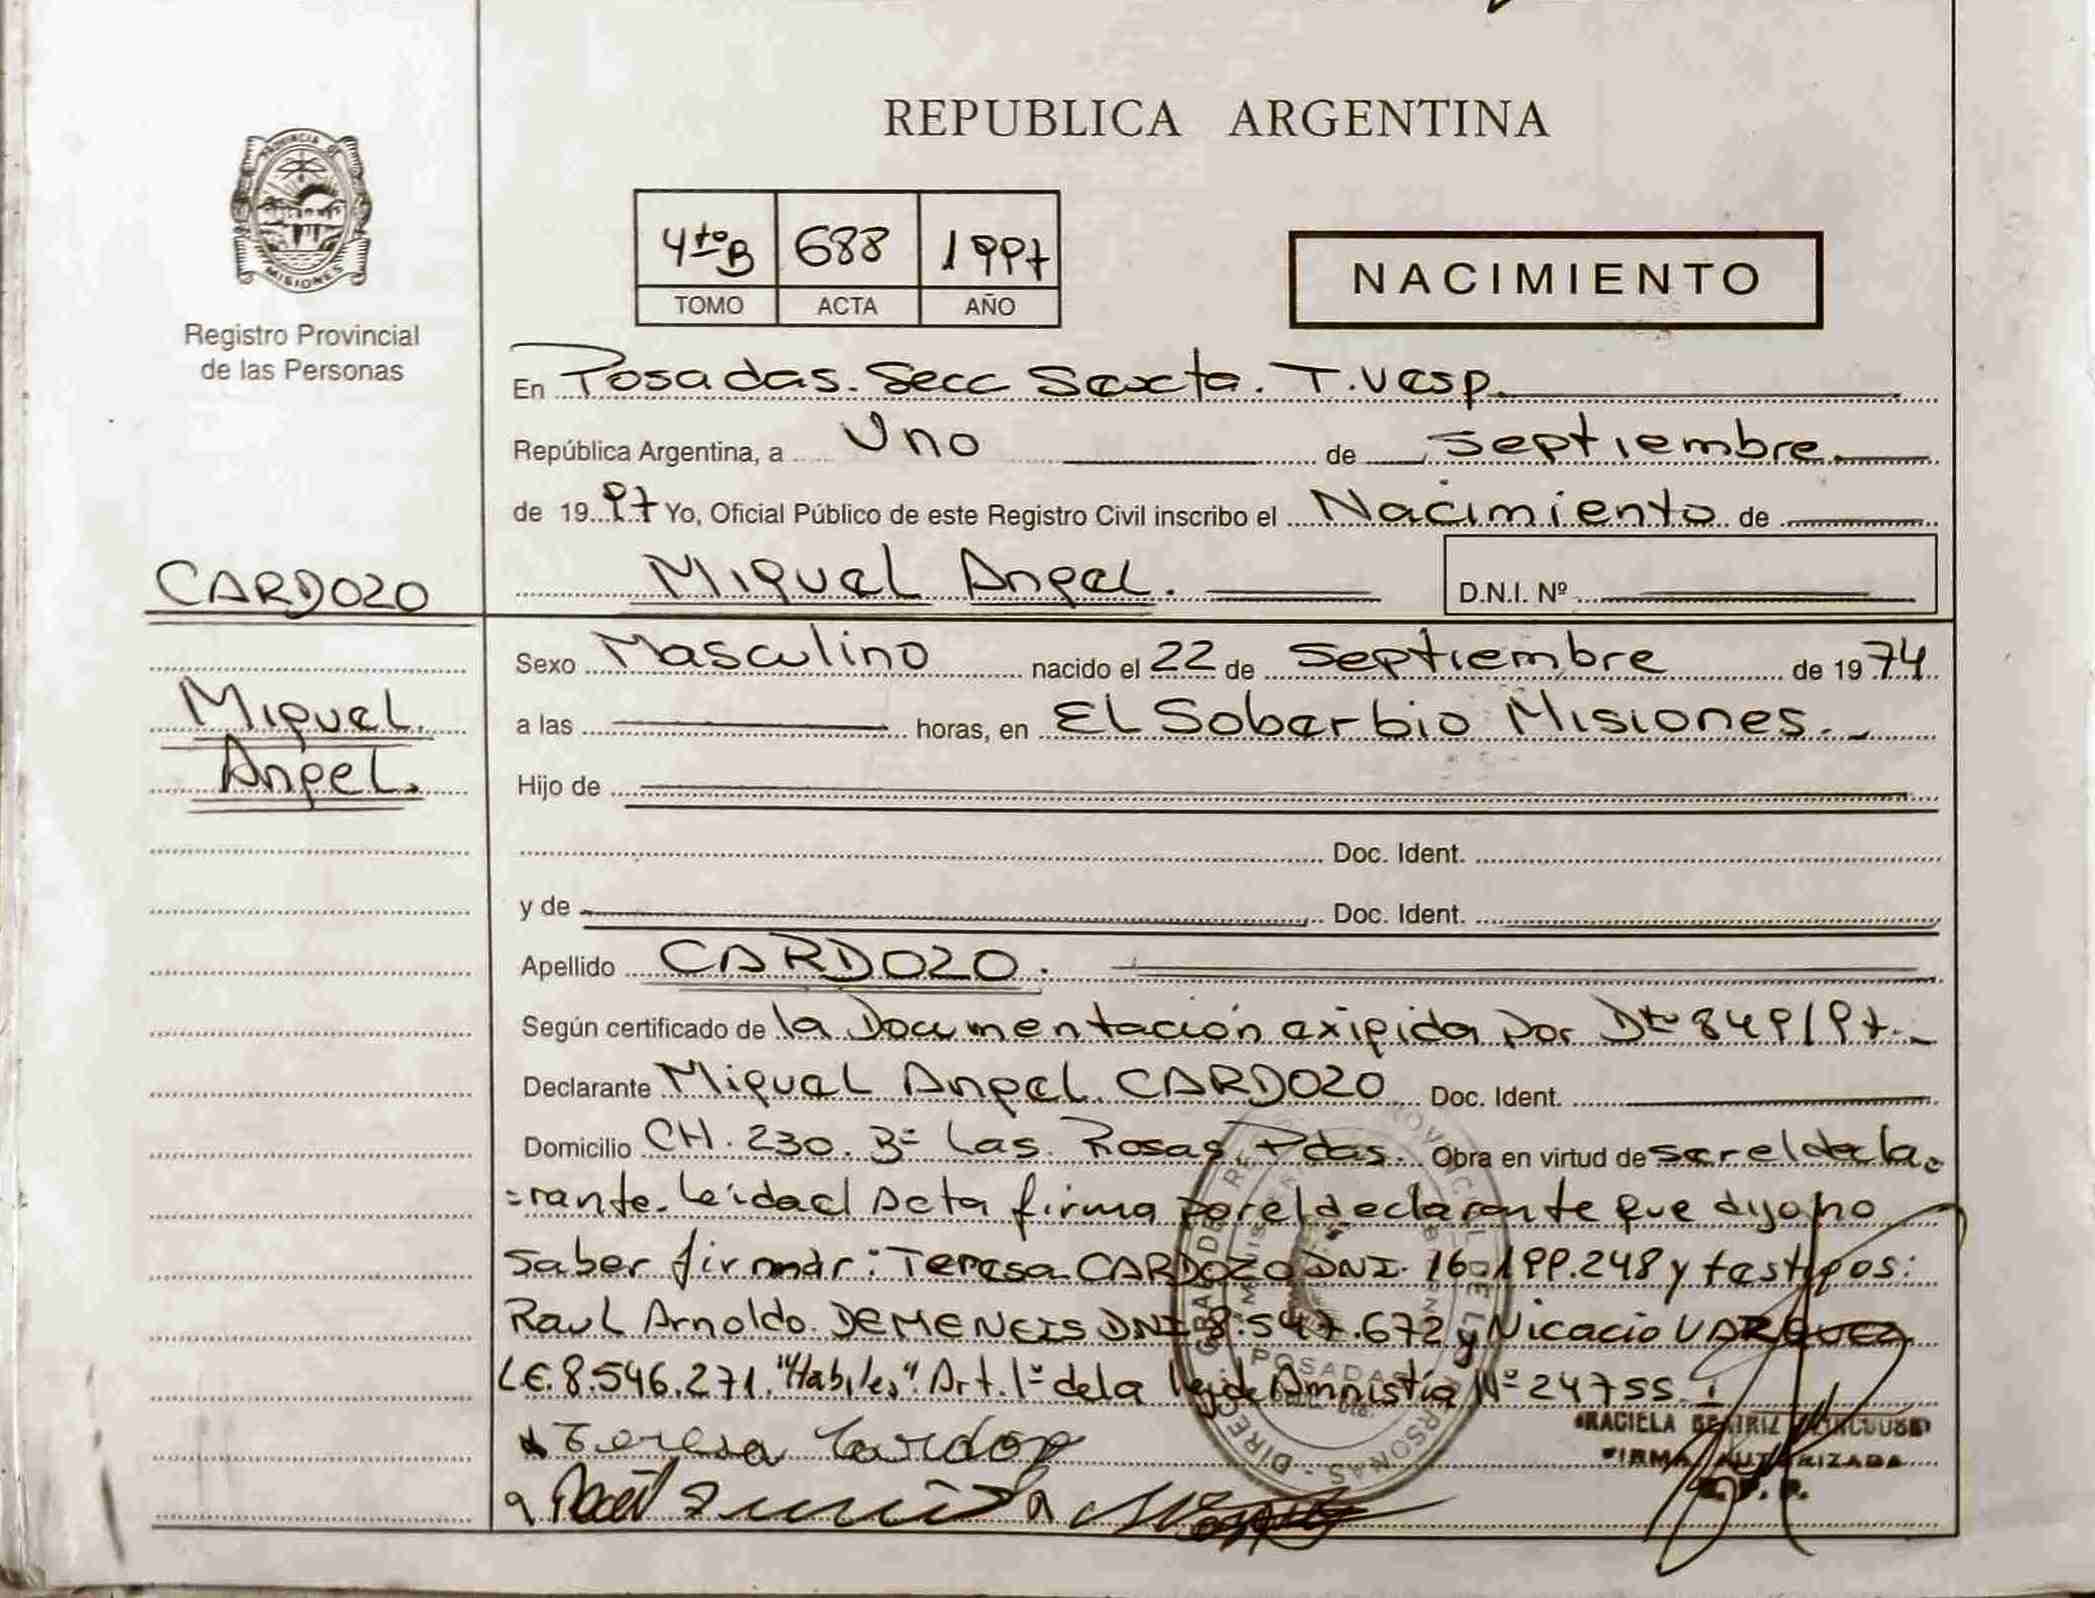 PROVINCIA DE
MISIONES
Registro Provincial
de las Personas
REPUBLICA ARGENTINA
4to B 688 1997
TOMO ACTA AÑO
NACIMIENTO
En Posadas. Secc Sexta. T. Vesp.
República Argentina, a Uno de Septiembre.
de 1997 Yo, Oficial Público de este Registro Civil inscribo el Nacimiento de
Miguel Angel. D.N.I. Nº
CARDOZO
Miguel
Angel.
Sexo Masculino nacido el 22 de Septiembre de 1974
a las horas, en El Soberbio Misiones.
Hijo de
Doc. Ident.
y de Doc. Ident.
Apellido CARDOZO.
Según certificado de la Documentación exigida por Dto 849/97.
Declarante Miguel Angel CARDOZO Doc. Ident.
Domicilio CH. 230. Bº Las Rosas, Pdas. Obra en virtud de ser el decla
=rante. leida el Acta firma por el declarante que dijo no
saber firmar: Teresa CARDOZO DNI. 16.199.248 y testigos:
Raul Arnoldo DEMENEIS DNI 8.547.672 y Nicacio
LE. 8.546.271. "Habiles". Art. 1º de la ley de Amnistia Nº 24755.
Teresa Cardozo
POSADAS
GRACIELA BEATRIZ
FIRMA AUTORIZADA